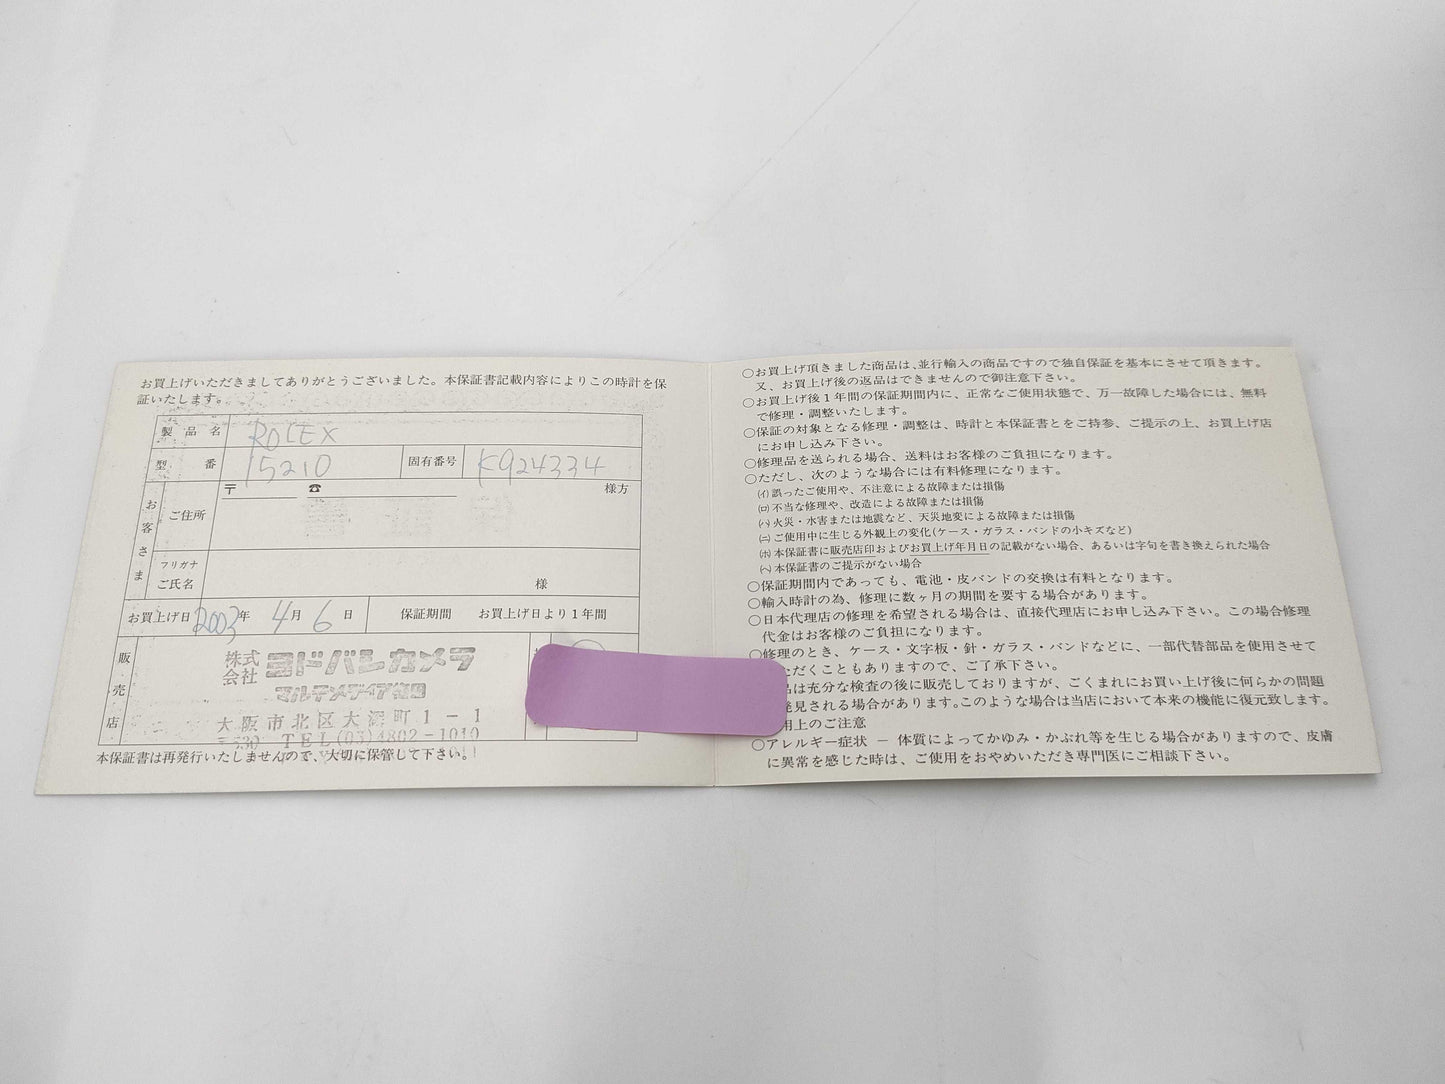 お買上げいただきましてありがとうございました。本保証書記載内容によりこの時計を保
証いたします。
製品名 ROLEX
型番 15210 固有番号 K924334
お客さま
ご住所 〒 ☎ 様方
フリガナ
ご氏名 様
お買上げ日 2003年 4月 6日 保証期間 お買上げ日より1年間
販売店
株式会社 ヨドバシカメラ
マルチメディア梅田
大阪市北区大深町1-1
〒530 TEL(03)4802-1010
本保証書は再発行いたしませんので、大切に保管して下さい。
○お買上げ頂きました商品は、並行輸入の商品ですので独自保証を基本にさせて頂きます。
又、お買上げ後の返品はできませんので御注意下さい。
○お買上げ後1年間の保証期間内に、正常なご使用状態で、万一故障した場合には、無料
で修理・調整いたします。
○保証の対象となる修理・調整は、時計と本保証書とをご持参、ご提示の上、お買上げ店
にお申し込み下さい。
○修理品を送られる場合、送料はお客様のご負担になります。
○ただし、次のような場合には有料修理になります。
(イ)誤ったご使用や、不注意による故障または損傷
(ロ)不当な修理や、改造による故障または損傷
(ハ)火災・水害または地震など、天災地変による故障または損傷
(ニ)ご使用中に生じる外観上の変化(ケース・ガラス・バンドの小キズなど)
(ホ)本保証書に販売店印およびお買上げ年月日の記載がない場合、あるいは字句を書き換えられた場合
(ヘ)本保証書のご提示がない場合
○保証期間内であっても、電池・皮バンドの交換は有料となります。
○輸入時計の為、修理に数ヶ月の期間を要する場合があります。
○日本代理店の修理を希望される場合は、直接代理店にお申し込み下さい。この場合修理
代金はお客様のご負担になります。
○修理のとき、ケース・文字板・針・ガラス・バンドなどに、一部代替部品を使用させて
ただくこともありますので、ご了承下さい。
品は充分な検査の後に販売しておりますが、ごくまれにお買い上げ後に何らかの問題
発見される場合があります。このような場合は当店において本来の機能に復元致します。
用上のご注意
○アレルギー症状 — 体質によってかゆみ・かぶれ等を生じる場合がありますので、皮膚
に異常を感じた時は、ご使用をおやめいただき専門医にご相談下さい。